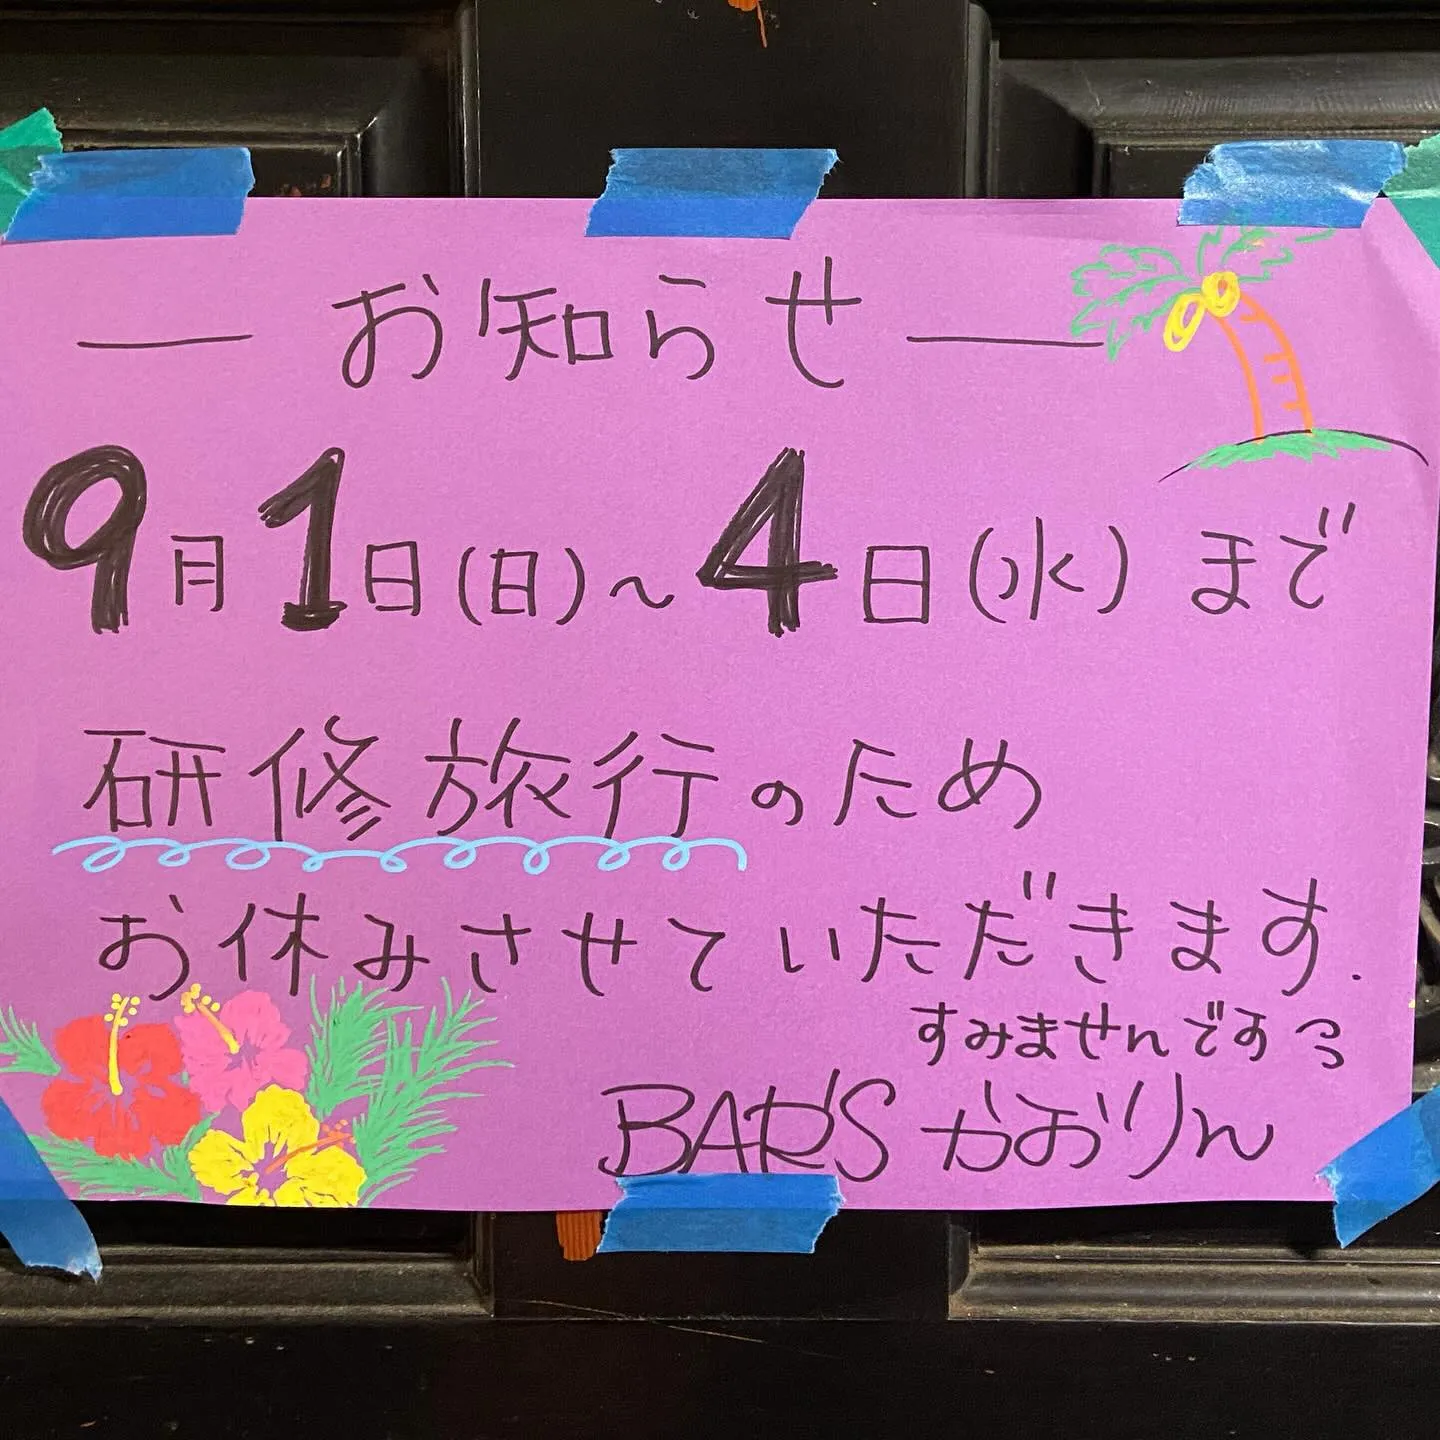 お知らせ
9月1日(日)～4日(水)まで
研修旅行のため
お休みさせていただきます.
すみませんです
BAR'S かおりん